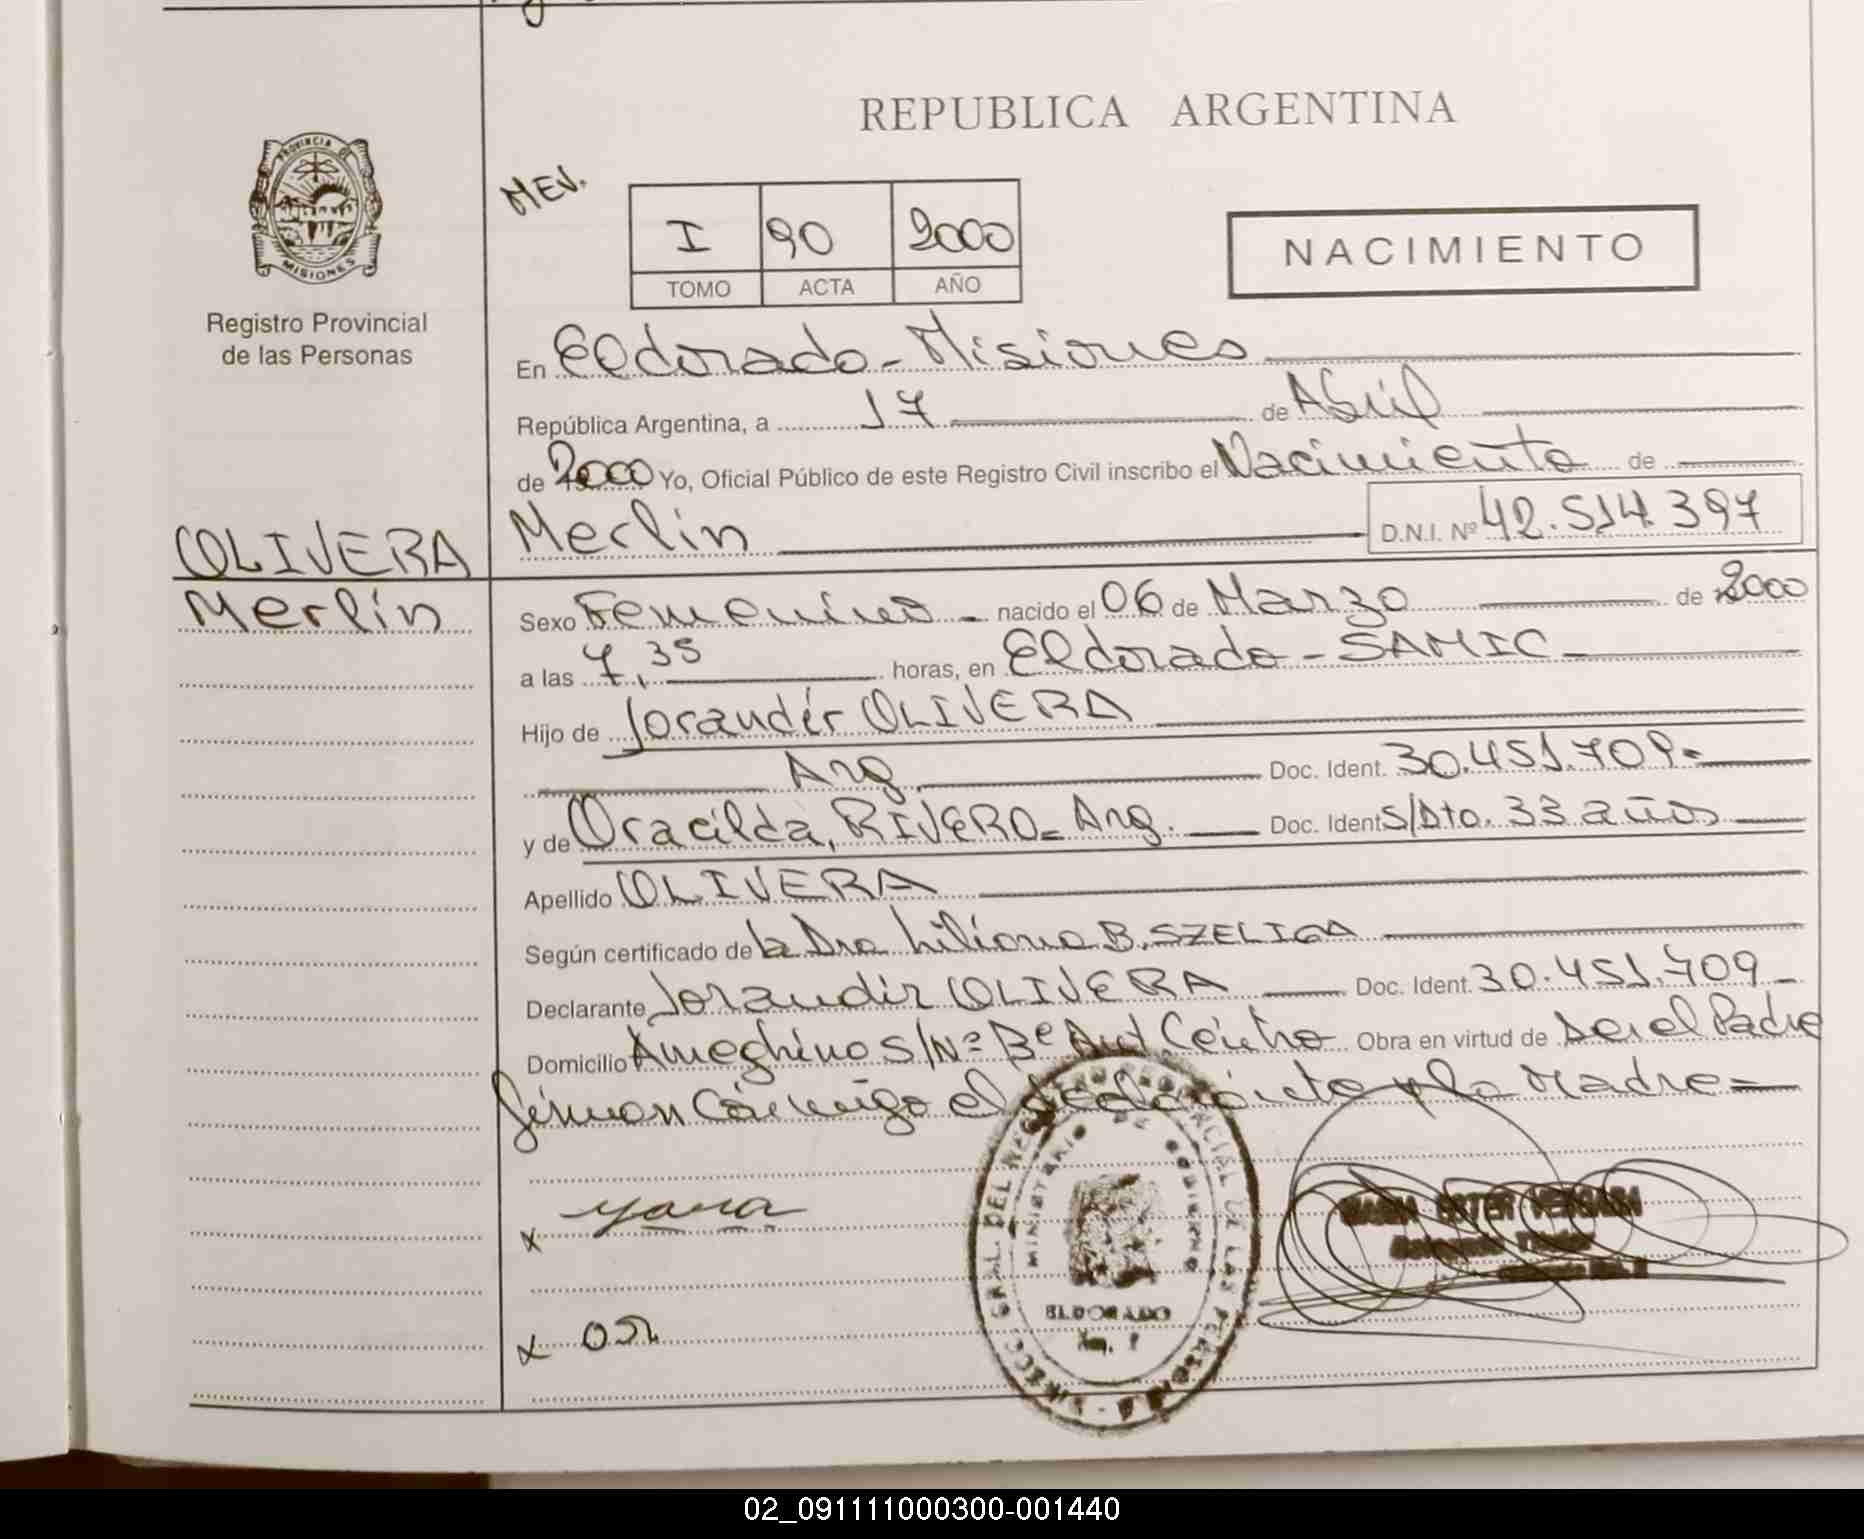 REPUBLICA ARGENTINA
PROVINCIA DE
MISIONES
Registro Provincial
de las Personas
MEV.
I 90 2000
TOMO ACTA AÑO
NACIMIENTO
En Eldorado - Misiones
República Argentina, a 17 de Abril
de 2000 Yo, Oficial Público de este Registro Civil inscribo el Nacimiento de
OLIVERA
Merlin
Merlin D.N.I. Nº 42.514.397
Sexo Femenino - nacido el 06 de Marzo de 2000
a las 7,35 horas, en Eldorado - SAMIC -
Hijo de Jorandir OLIVERA
Arg. Doc. Ident. 30.451.709 -
y de Oracilda, RIVERO - Arg. Doc. Ident. S/Dto. 33 años
Apellido OLIVERA
Según certificado de la Dra Liliana B. SZELIGA
Declarante Jorandir OLIVERA Doc. Ident. 30.451.709 -
Domicilio Ameghino S/Nº Bº Centro Obra en virtud de Ser el Padre
firman Conmigo el declarante y la Madre =
x
x
MINISTERIO DE GOBIERNO
ESTER
02_091111000300-001440